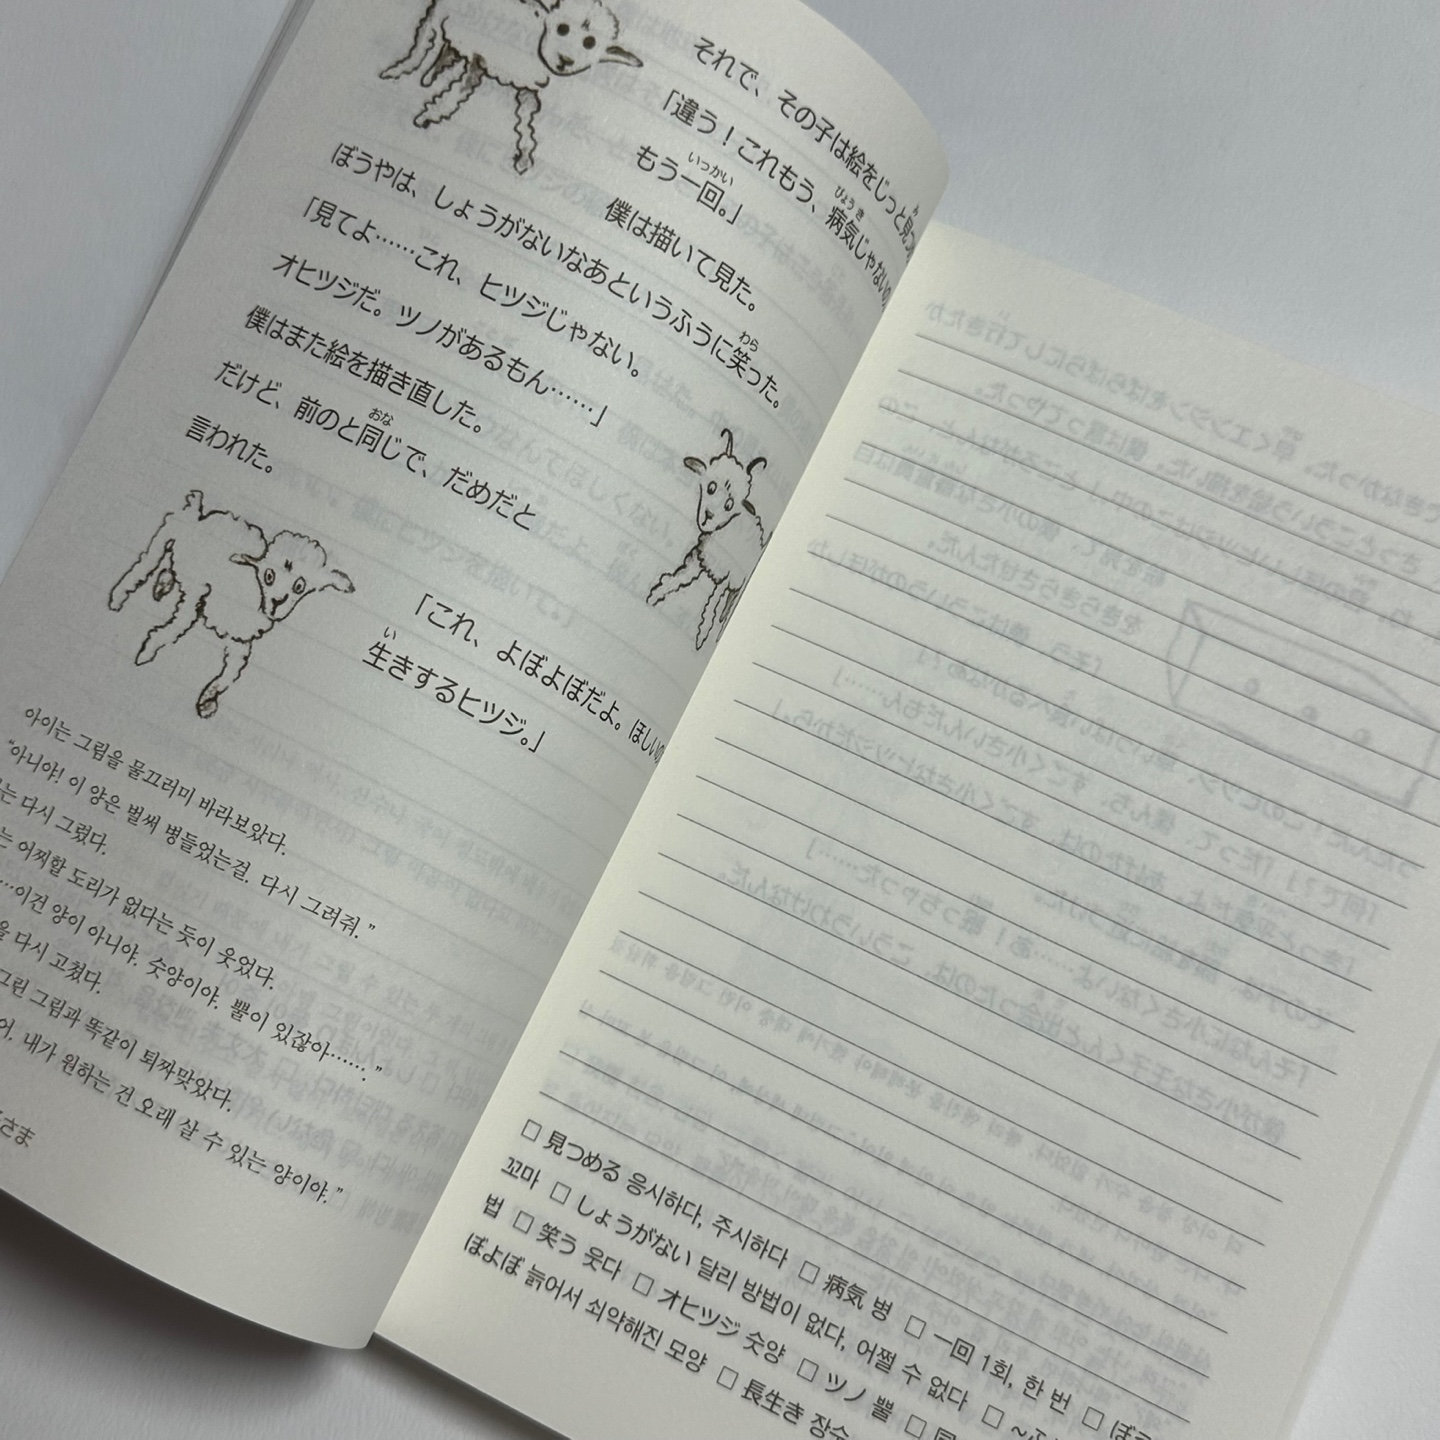 それで、その子は絵をじっと見つ
「違う！これもう、病気じゃないの
もう一回。」
僕は描いて見た。
ぼうやは、しょうがないなあというふうに笑った。
「見てよ……これ、ヒツジじゃない。
オヒツジだ。ツノがあるもん……」
僕はまた絵を描き直した。
だけど、前のと同じで、だめだと
言われた。
「これ、よぼよぼだよ。ほしいの
生きするヒツジ。」
아이는 그림을 물끄러미 바라보았다.
“아니야! 이 양은 벌써 병들었는걸. 다시 그려줘.”
는 다시 그렸다.
는 어찌할 도리가 없다는 듯이 웃었다.
…이건 양이 아니야. 숫양이야. 뿔이 있잖아……”
을 다시 고쳤다.
그린 그림과 똑같이 퇴짜맞았다.
어. 내가 원하는 건 오래 살 수 있는 양이야.”
さま
□ 見つめる 응시하다, 주시하다 □ 病気 병 □ 一回 1회, 한 번 □ ぼう
꼬마 □ しょうがない 달리 방법이 없다, 어쩔 수 없다 □ ~ふ
법 □ 笑う 웃다 □ オヒツジ 숫양 □ ツノ 뿔 □ 同
ぼよぼ 늙어서 쇠약해진 모양 □ 長生き 장수